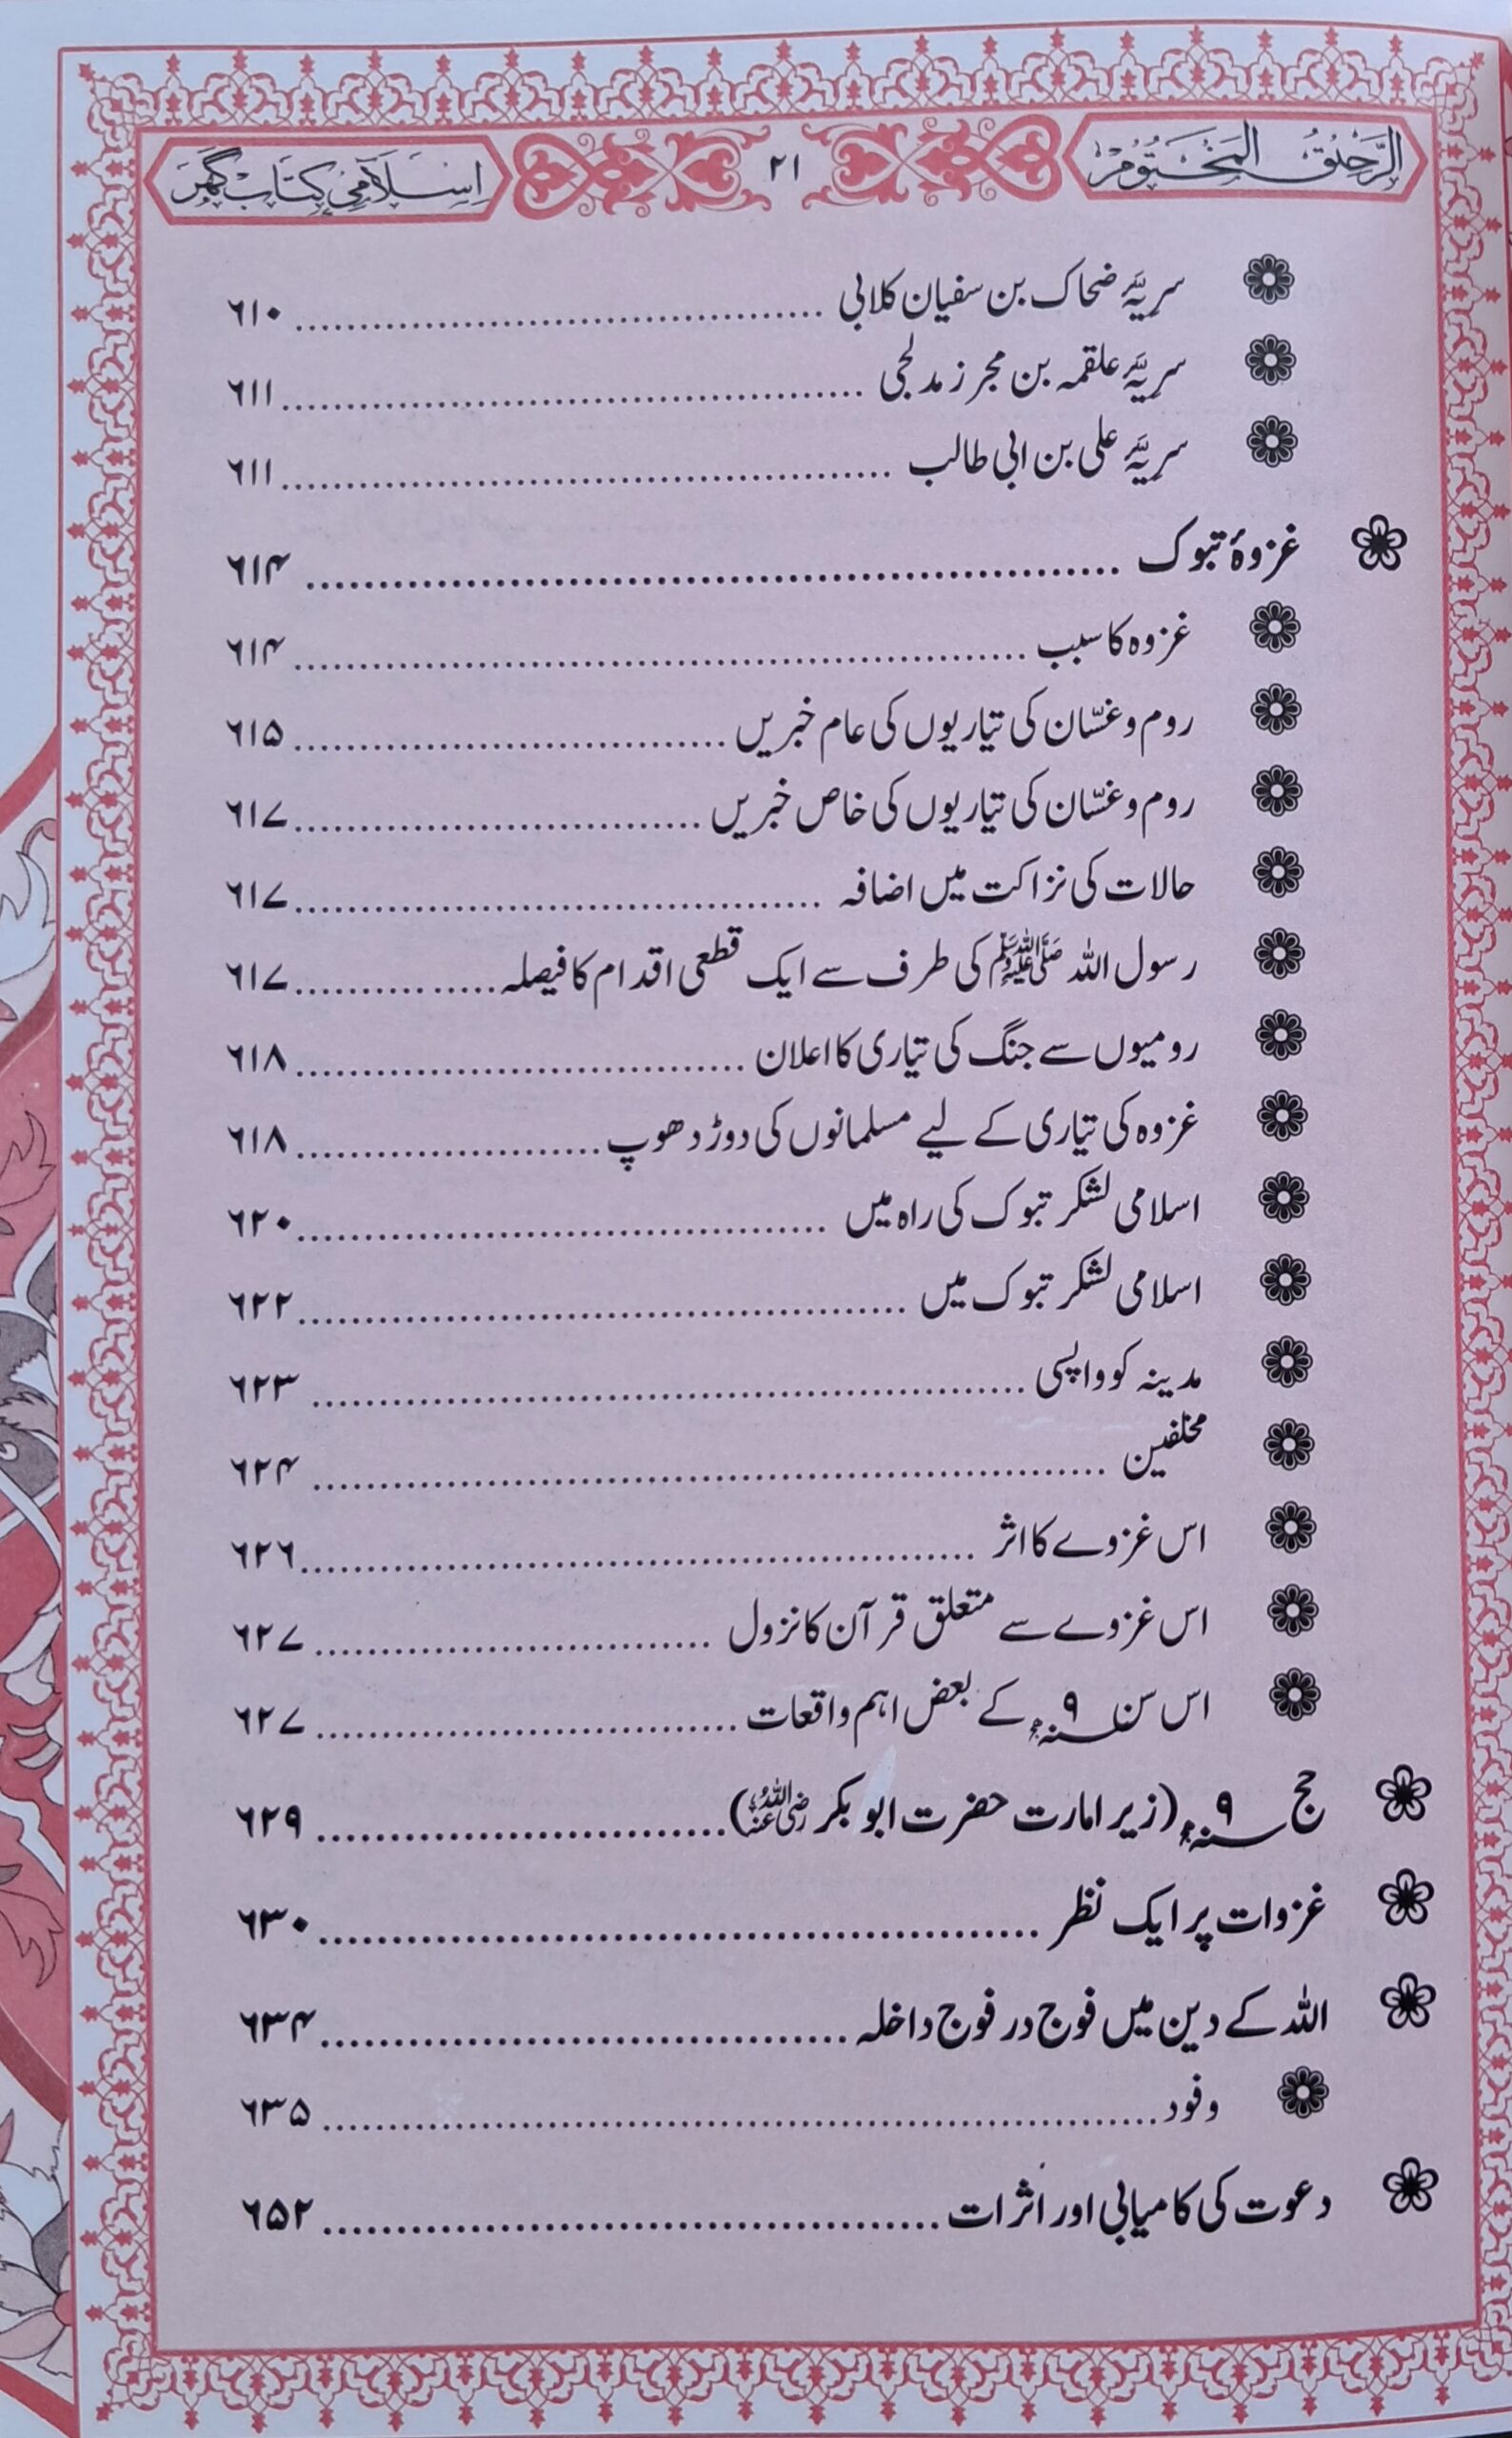 الرحیق المختوم ۲۱ اسلامی کتاب گھر
سریۂ ضحاک بن سفیان کلابی ۶۱۰
سریۂ علقمہ بن مجرز مدلجی ۶۱۱
سریۂ علی بن ابی طالب ۶۱۱
غزوۂ تبوک ۶۱۴
غزوہ کا سبب ۶۱۴
روم و غسّان کی تیاریوں کی عام خبریں ۶۱۵
روم و غسّان کی تیاریوں کی خاص خبریں ۶۱۷
حالات کی نزاکت میں اضافہ ۶۱۷
رسول اللہ ﷺ کی طرف سے ایک قطعی اقدام کا فیصلہ ۶۱۷
رومیوں سے جنگ کی تیاری کا اعلان ۶۱۸
غزوہ کی تیاری کے لیے مسلمانوں کی دوڑ دھوپ ۶۱۸
اسلامی لشکر تبوک کی راہ میں ۶۲۰
اسلامی لشکر تبوک میں ۶۲۲
مدینہ کو واپسی ۶۲۳
مخلفین ۶۲۴
اس غزوے کا اثر ۶۲۶
اس غزوے سے متعلق قرآن کا نزول ۶۲۷
اس سن ۹؁ھ کے بعض اہم واقعات ۶۲۷
حج ۹؁ھ (زیر امارت حضرت ابو بکر رضی اللہ عنہ) ۶۲۹
غزوات پر ایک نظر ۶۳۰
اللہ کے دین میں فوج در فوج داخلہ ۶۳۴
وفود ۶۳۵
دعوت کی کامیابی اور اثرات ۶۵۲